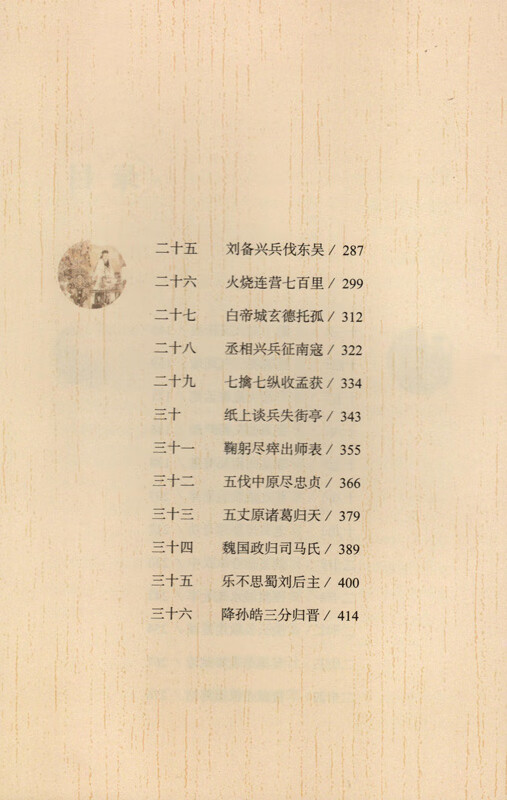 二十五 刘备兴兵伐东吴 / 287
二十六 火烧连营七百里 / 299
二十七 白帝城玄德托孤 / 312
二十八 丞相兴兵征南寇 / 322
二十九 七擒七纵收孟获 / 334
三十 纸上谈兵失街亭 / 343
三十一 鞠躬尽瘁出师表 / 355
三十二 五伐中原尽忠贞 / 366
三十三 五丈原诸葛归天 / 379
三十四 魏国政归司马氏 / 389
三十五 乐不思蜀刘后主 / 400
三十六 降孙皓三分归晋 / 414